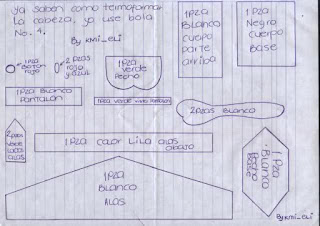 ya saben como termoformar
la cabeza, yo use bola
No. 4.
By kmi_eli
1 Pza
Blanco
cuerpo
parte
arriba
1 Pza
Negro
Cuerpo
Base
1 Pza
Boton
rojo
2 Pzas
rojo
y azul
1 Pza
verde
Pecho
1 Pza Blanco
Pantalon
1 Pza verde
Pantalon
2 Pzas Blanco
2 Pzas
verde
alas
1 Pza color Lila alas
abajo
1 Pza
Blanco
ALAS
1 Pza
Blanco
Base
By kmi_eli